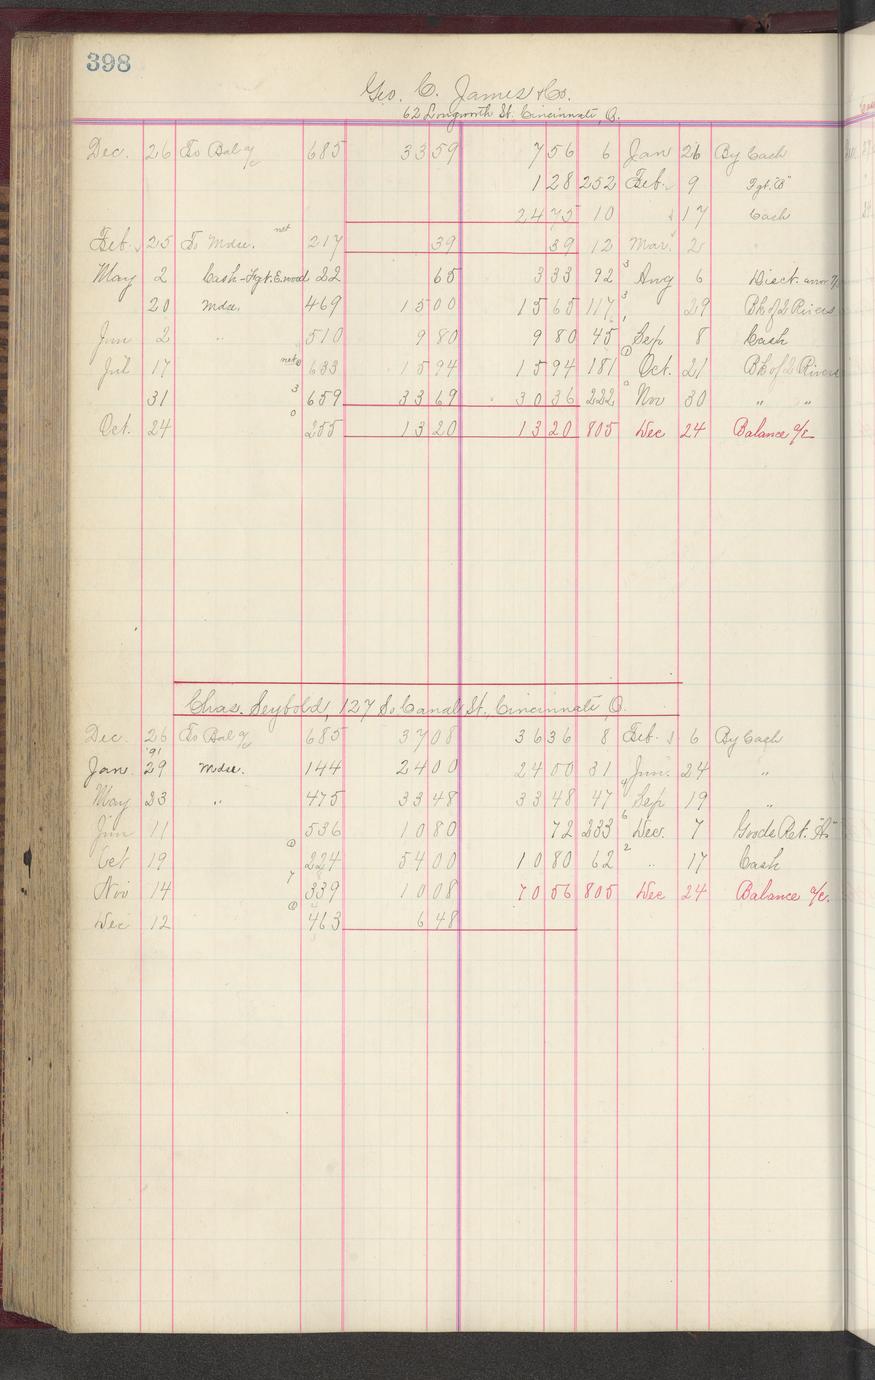 398
Geo. C. James & Co.
62 Longworth St. Cincinnati, O.
Dec. 26 To Bal % 685 33 59 7 56 6 Jan 26 By Cash
1 28 252 Feb. 9 Fgt. "B"
24 75 10 " 17 Cash
Feb. 25 To Mdse. net 217 39 39 12 Mar. 2 "
May 2 Cash - Fgt. E. wood 22 65 3 33 92 3 Aug 6 Disct.
20 Mdse. 469 15 00 15 65 117 3 " 29 Bk of 2 Rivers
Jun 2 " 510 9 80 9 80 45 1 Sep 8 Cash
Jul 17 net 633 15 94 15 94 181 Oct. 21 Bk of 2 Rivers
31 3 659 33 69 30 36 222 Nov 30 " "
Oct. 24 0 255 13 20 13 20 805 Dec 24 Balance a/c
Chas. Seybold, 127 So Canal St. Cincinnati, O.
Dec. 26 To Bal % 685 37 08 36 36 8 Feb. 6 By Cash
'91
Jan. 29 Mdse. 144 24 00 24 00 31 Jun. 24 "
May 23 " 475 33 48 33 48 47 4 Sep 19 "
Jun 11 536 10 80 72 233 6 Dec. 7 Goods Ret. "A"
Oct 19 224 54 00 10 80 62 2 " 17 Cash
Nov 14 7 339 10 08 70 56 805 Dec 24 Balance a/c.
Dec 12 463 6 48